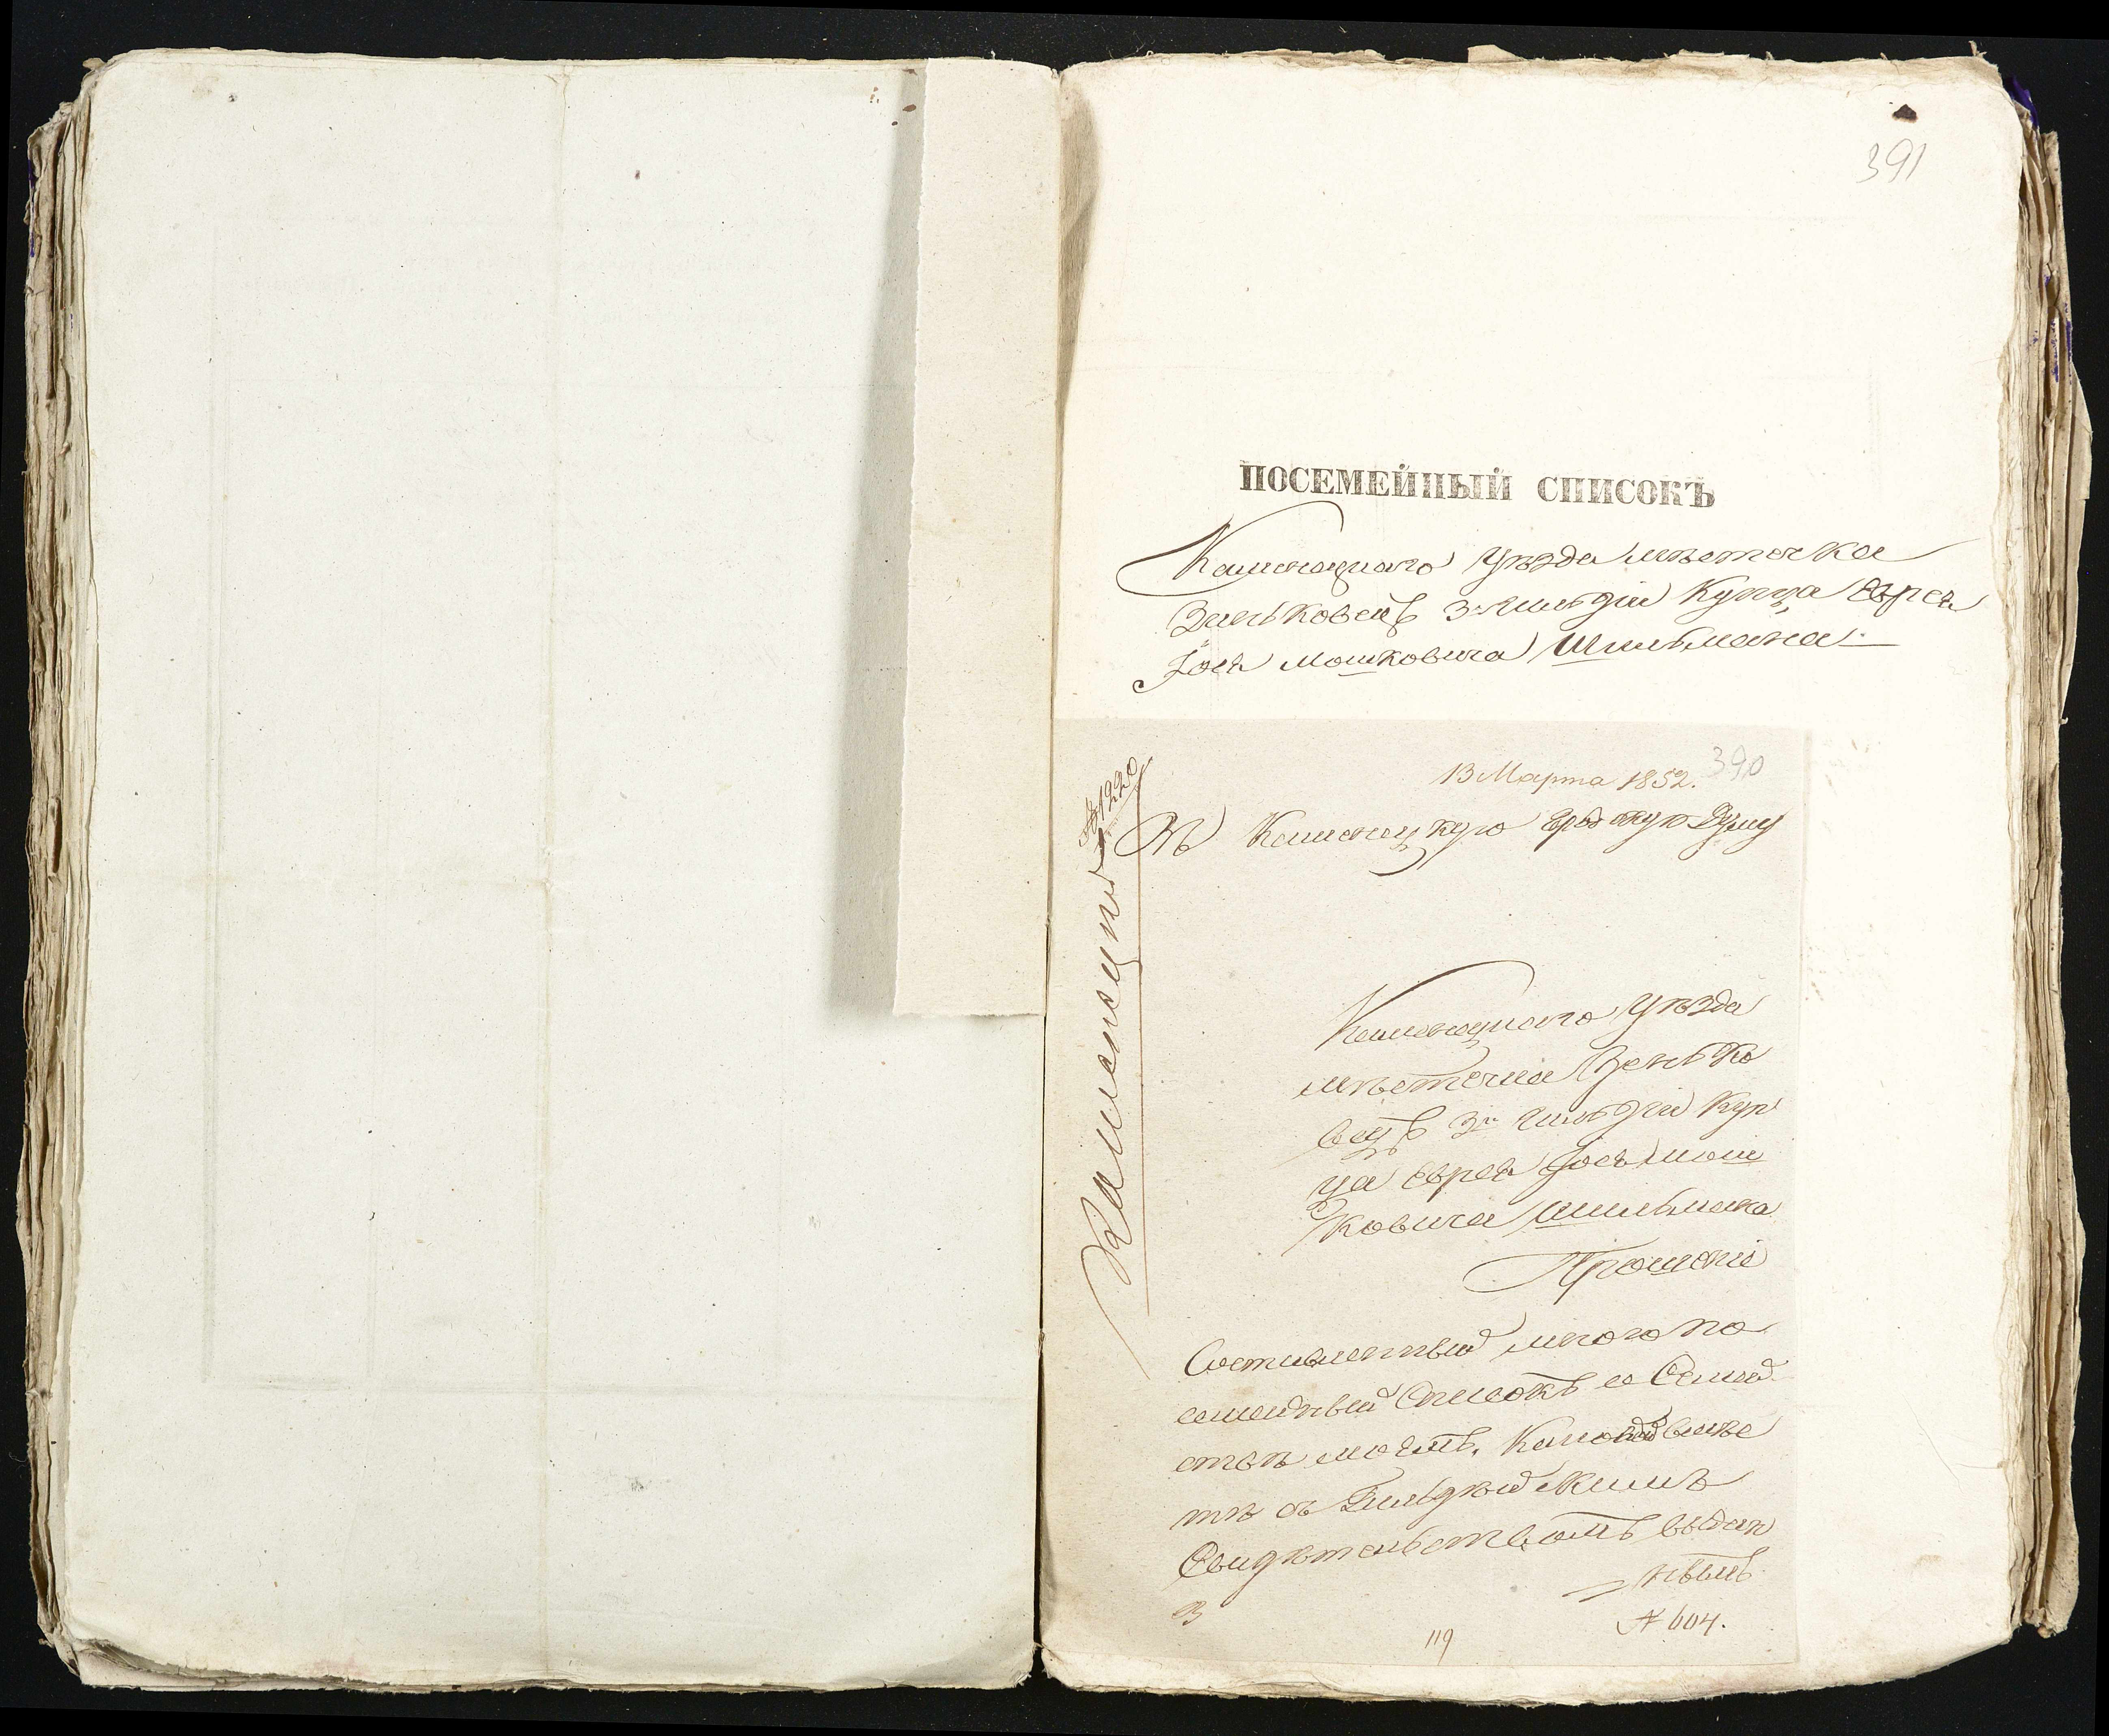 391
ПОСЕМЕЙНЫЙ СПИСОКЪ
Каменецкаго Уѣзда мѣстечка
Зиньковецъ 3й Гильдіи Купца Еврея
Іося Мошковича Шпильмана
390
13 Марта 1852.
№ 1220
Въ Каменецкую Градскую Думу
Каменецкаго Уѣзда
мѣстечка Зенько
вецъ 3й Гильдіи Куп
ца Еврея Іося Мош
ковича Шпильмана
Прошеніе
Составленный мною по
семейный Списокъ о Семей
ствѣ моемъ,
тѣ съ
Свидѣтельствомъ выдан
нымъ
В
№ 604.
119